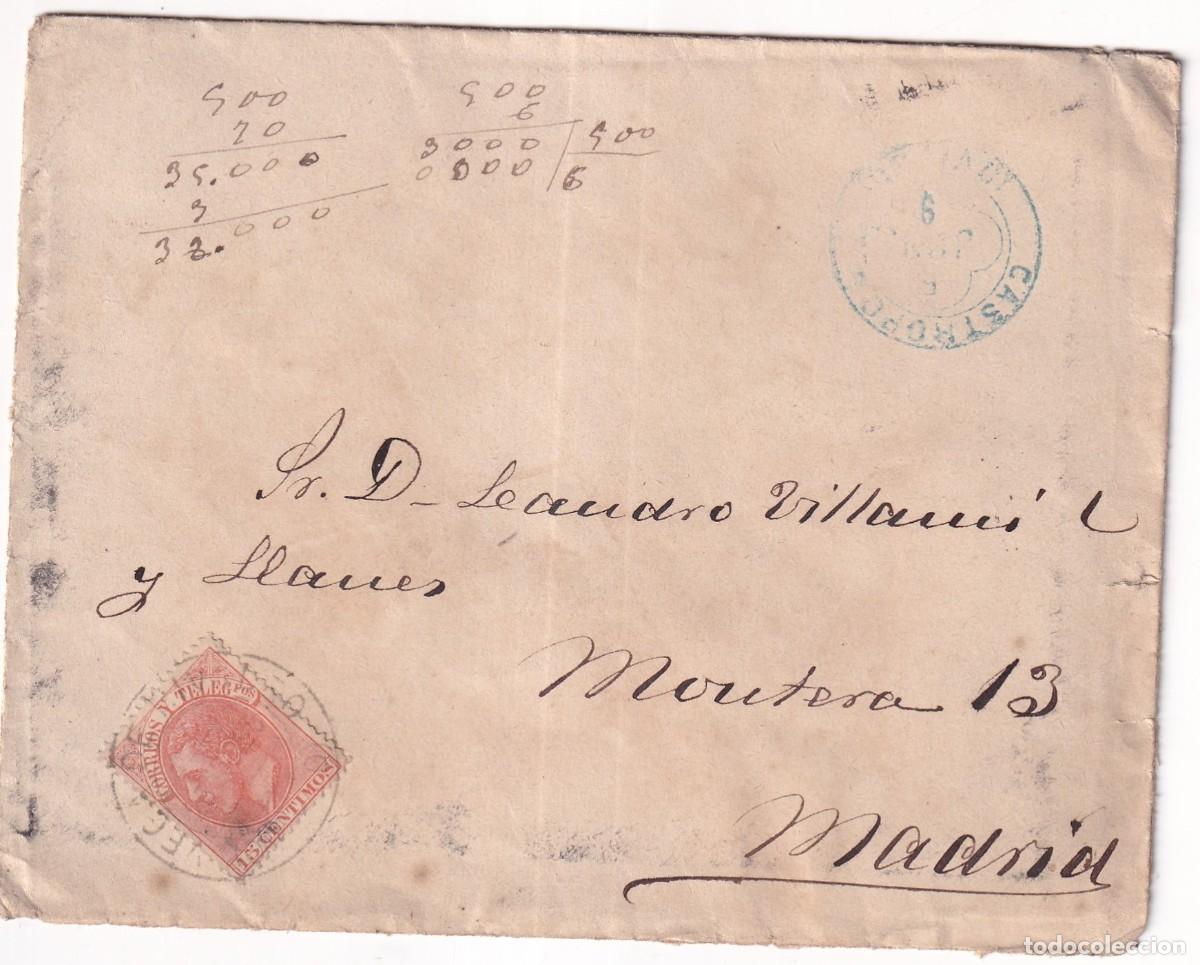 500
70
35.000
3
32.000
500
6
3000 500
0000 6
CASTROPO
Sr. D. Leandro Villamil
y Llanes
Montera 13
Madrid
CORREOS Y TELEGFOS
15 CENTIMOS
todocoleccion